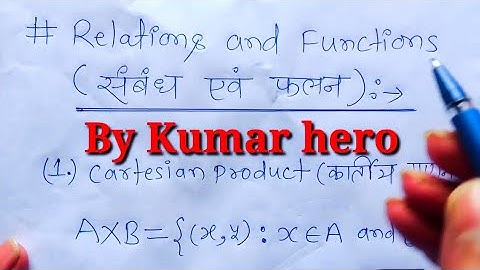 # Relations and Functions
(संबंध एवं फलन):→
By Kumar hero
(1.) Cartesian Product (कार्तीय
A×B={(x,y): x∈A and